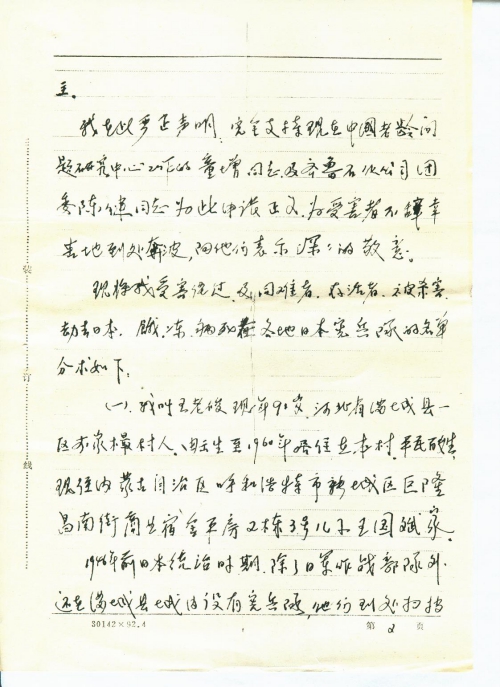 主。
我在此严正声明，完全支持现在中國老龄问
题研究中心工作的童增同志及齐鲁石化公司团
委陈健同志为此申诉正义，为受害者不辞辛
苦地到处奔波，向他们表示深深的敬意。
现将我受害经过，及同难者、存活者、被杀害、
劫去日本、饿、冻、病死在各地日本宪兵队的名单
分述如下：
(一)、我叫王老俊现年91岁，河北省满城县一
区 家 村人，由出生至1960年居住在本村，平民百姓，
现住内蒙古自治区呼和浩特市新城区巨隆
昌南街商业宿舍平房2栋3号儿子王国斌家。
1945年前日本统治时期，除了日军作战部队外，
还在满城县城内设有宪兵队，他们到处扫荡
装 订 线
30142×92.4
第 2 页